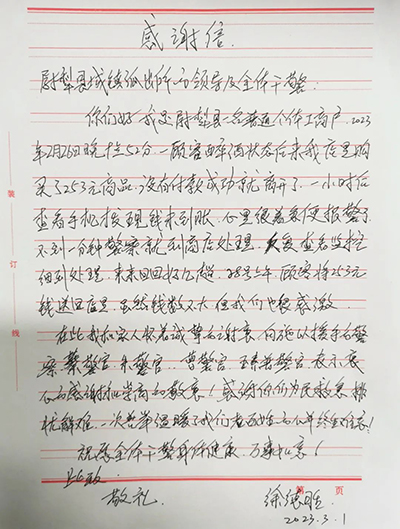 感谢信.
尉犁县城镇派出所的领导及全体干警:
你们好!我是尉犁县一名普通个体工商户.2023
年2月26日晚 52分.一顾客由醉酒状态后来我店里购
买了253元商品,没有付款成功就离开了.一小时后
查看手机发现钱未到账.心里很着急便报警了
不到一分钟警察就到商店处理.反复查看监控
细致处理.来来回回好几趟.28号上午顾客将253元
钱送回店里.虽然钱数不大但我们也很感激.
在此我和家人怀着诚挚的谢意向施以援手的警
察 警官.朱警官.曾警官. 警官表示衷
心的感谢和崇高的敬意!感谢你们为民救急排
忧解难.一次善举温暖了我们老百姓的心
祝愿全体干警身体健康.万事如意!
此致
敬礼
第 页
徐德胜
2023.3.1
装
订
线